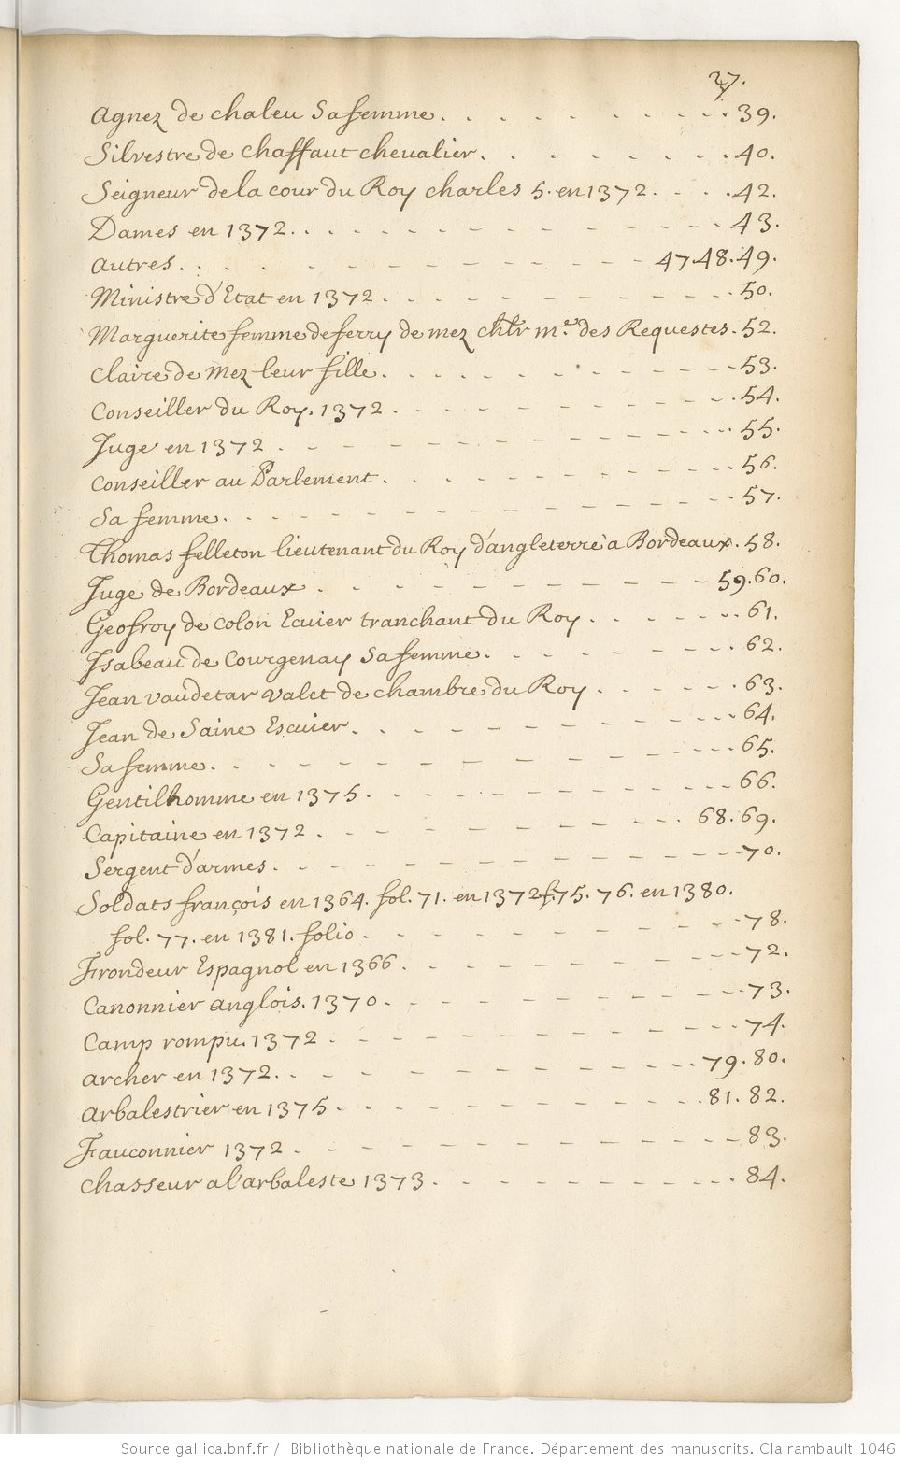 27.
Agnez de chaleu Sa femme. . . . . . . . . . 39.
Silvestre de chaffaut chevalier. . . . . . . 40.
Seigneur de la cour du Roy charles 5. en 1372. . . . 42.
Dames en 1372. . . . . . . . . . . . 43.
autres. . . . . . . . . . . 47.48.49.
Ministre d'Etat en 1372. . . . . . . . . . 50.
Marguerite femme de ferry de mez chlr me. des Requestes. 52.
Claire de Mez leur fille. . . . . . . . . . 53.
Conseiller du Roy. 1372. . . . . . . . . . 54.
Juge en 1372. . . . . . . . . . . . 55.
Conseiller au Parlement. . . . . . . . . . 56.
Sa femme. . . . . . . . . . . . . 57.
Thomas felleton lieutenant du Roy d'angleterre a Bordeaux. 58.
Juge de Bordeaux. . . . . . . . . . 59.60.
Geofroy de colon Ecuier tranchant du Roy. . . . . . 61.
Isabeau de Courgenay Sa femme. . . . . . . . 62.
Jean vaudetar valet de chambre du Roy. . . . . . 63.
Jean de Saine Escuier. . . . . . . . . . 64.
Sa femme. . . . . . . . . . . . . 65.
Gentilhomme en 1375. . . . . . . . . . 66.
Capitaine en 1372. . . . . . . . . . 68.69.
Sergent d'armes. . . . . . . . . . . 70.
Soldats françois en 1364. fol. 71. en 1372 f. 75. 76. en 1380.
fol. 77. en 1381. folio. . . . . . . . . . 78.
Frondeur Espagnol en 1366. . . . . . . . . 72.
Canonnier anglois. 1370. . . . . . . . . . 73.
Camp rompu. 1372. . . . . . . . . . . 74.
archer en 1372. . . . . . . . . . . 79.80.
arbalestrier en 1375. . . . . . . . . . 81.82.
Fauconnier 1372. . . . . . . . . . . 83.
Chasseur a l'arbaleste 1373. . . . . . . . . 84.
Source gallica.bnf.fr / Bibliothèque nationale de France. Département des manuscrits. Clairambault 1046